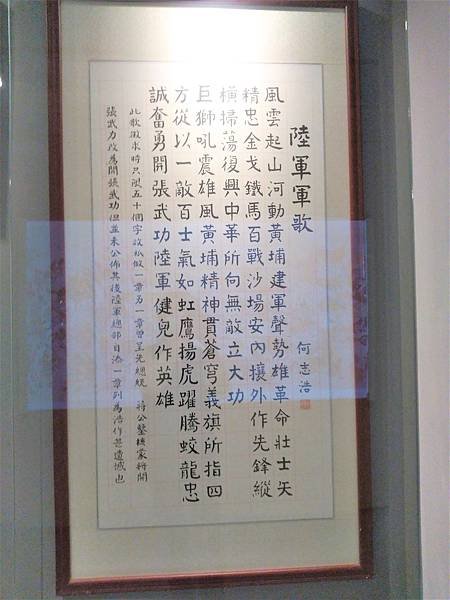 陸軍軍歌
何志浩
風雲起山河動黃埔建軍聲勢雄革命壯士矢
精忠金戈鐵馬百戰沙場安內攘外作先鋒縱
橫掃蕩復興中華所向無敵立大功
巨獅吼震雄風黃埔精神貫蒼穹義旗所指四
方從以一敵百士氣如虹鷹揚虎躍騰蛟龍忠
誠奮勇開張武功陸軍健兒作英雄
此歌徵求時只限五十個字故私做一章另一章曾呈先總統 蔣公鑒核蒙將開
張武力改為開張武功但並未公佈其後陸軍總部自添一章列為浩作甚遺憾也